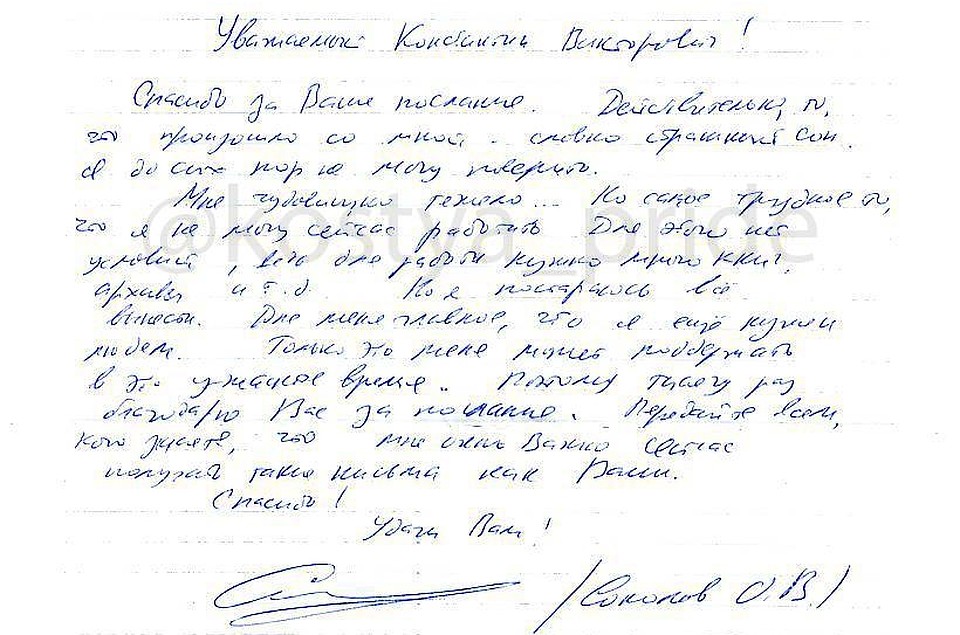 Уважаемый Константин Викторович!
Спасибо за Ваше послание. Действительно, то,
что произошло со мной - словно страшный сон.
Я до сих пор не могу поверить.
Мне чудовищно тяжело... Но самое трудное то,
что я не могу сейчас работать. Для этого нет
условий, ведь для работы нужно много книг,
архивы и т.д. Но я постараюсь всё
вынести. Для меня главное, что я ещё нужен
людям. Только это меня может поддержать
в это ужасное время. Потому тысячу раз
благодарю Вас за послание. Передайте всем,
кого знаете, что мне очень важно сейчас
получать такие письма как Ваши.
Спасибо!
Удачи Вам!
/Соколов О.В./
@kostya_pride